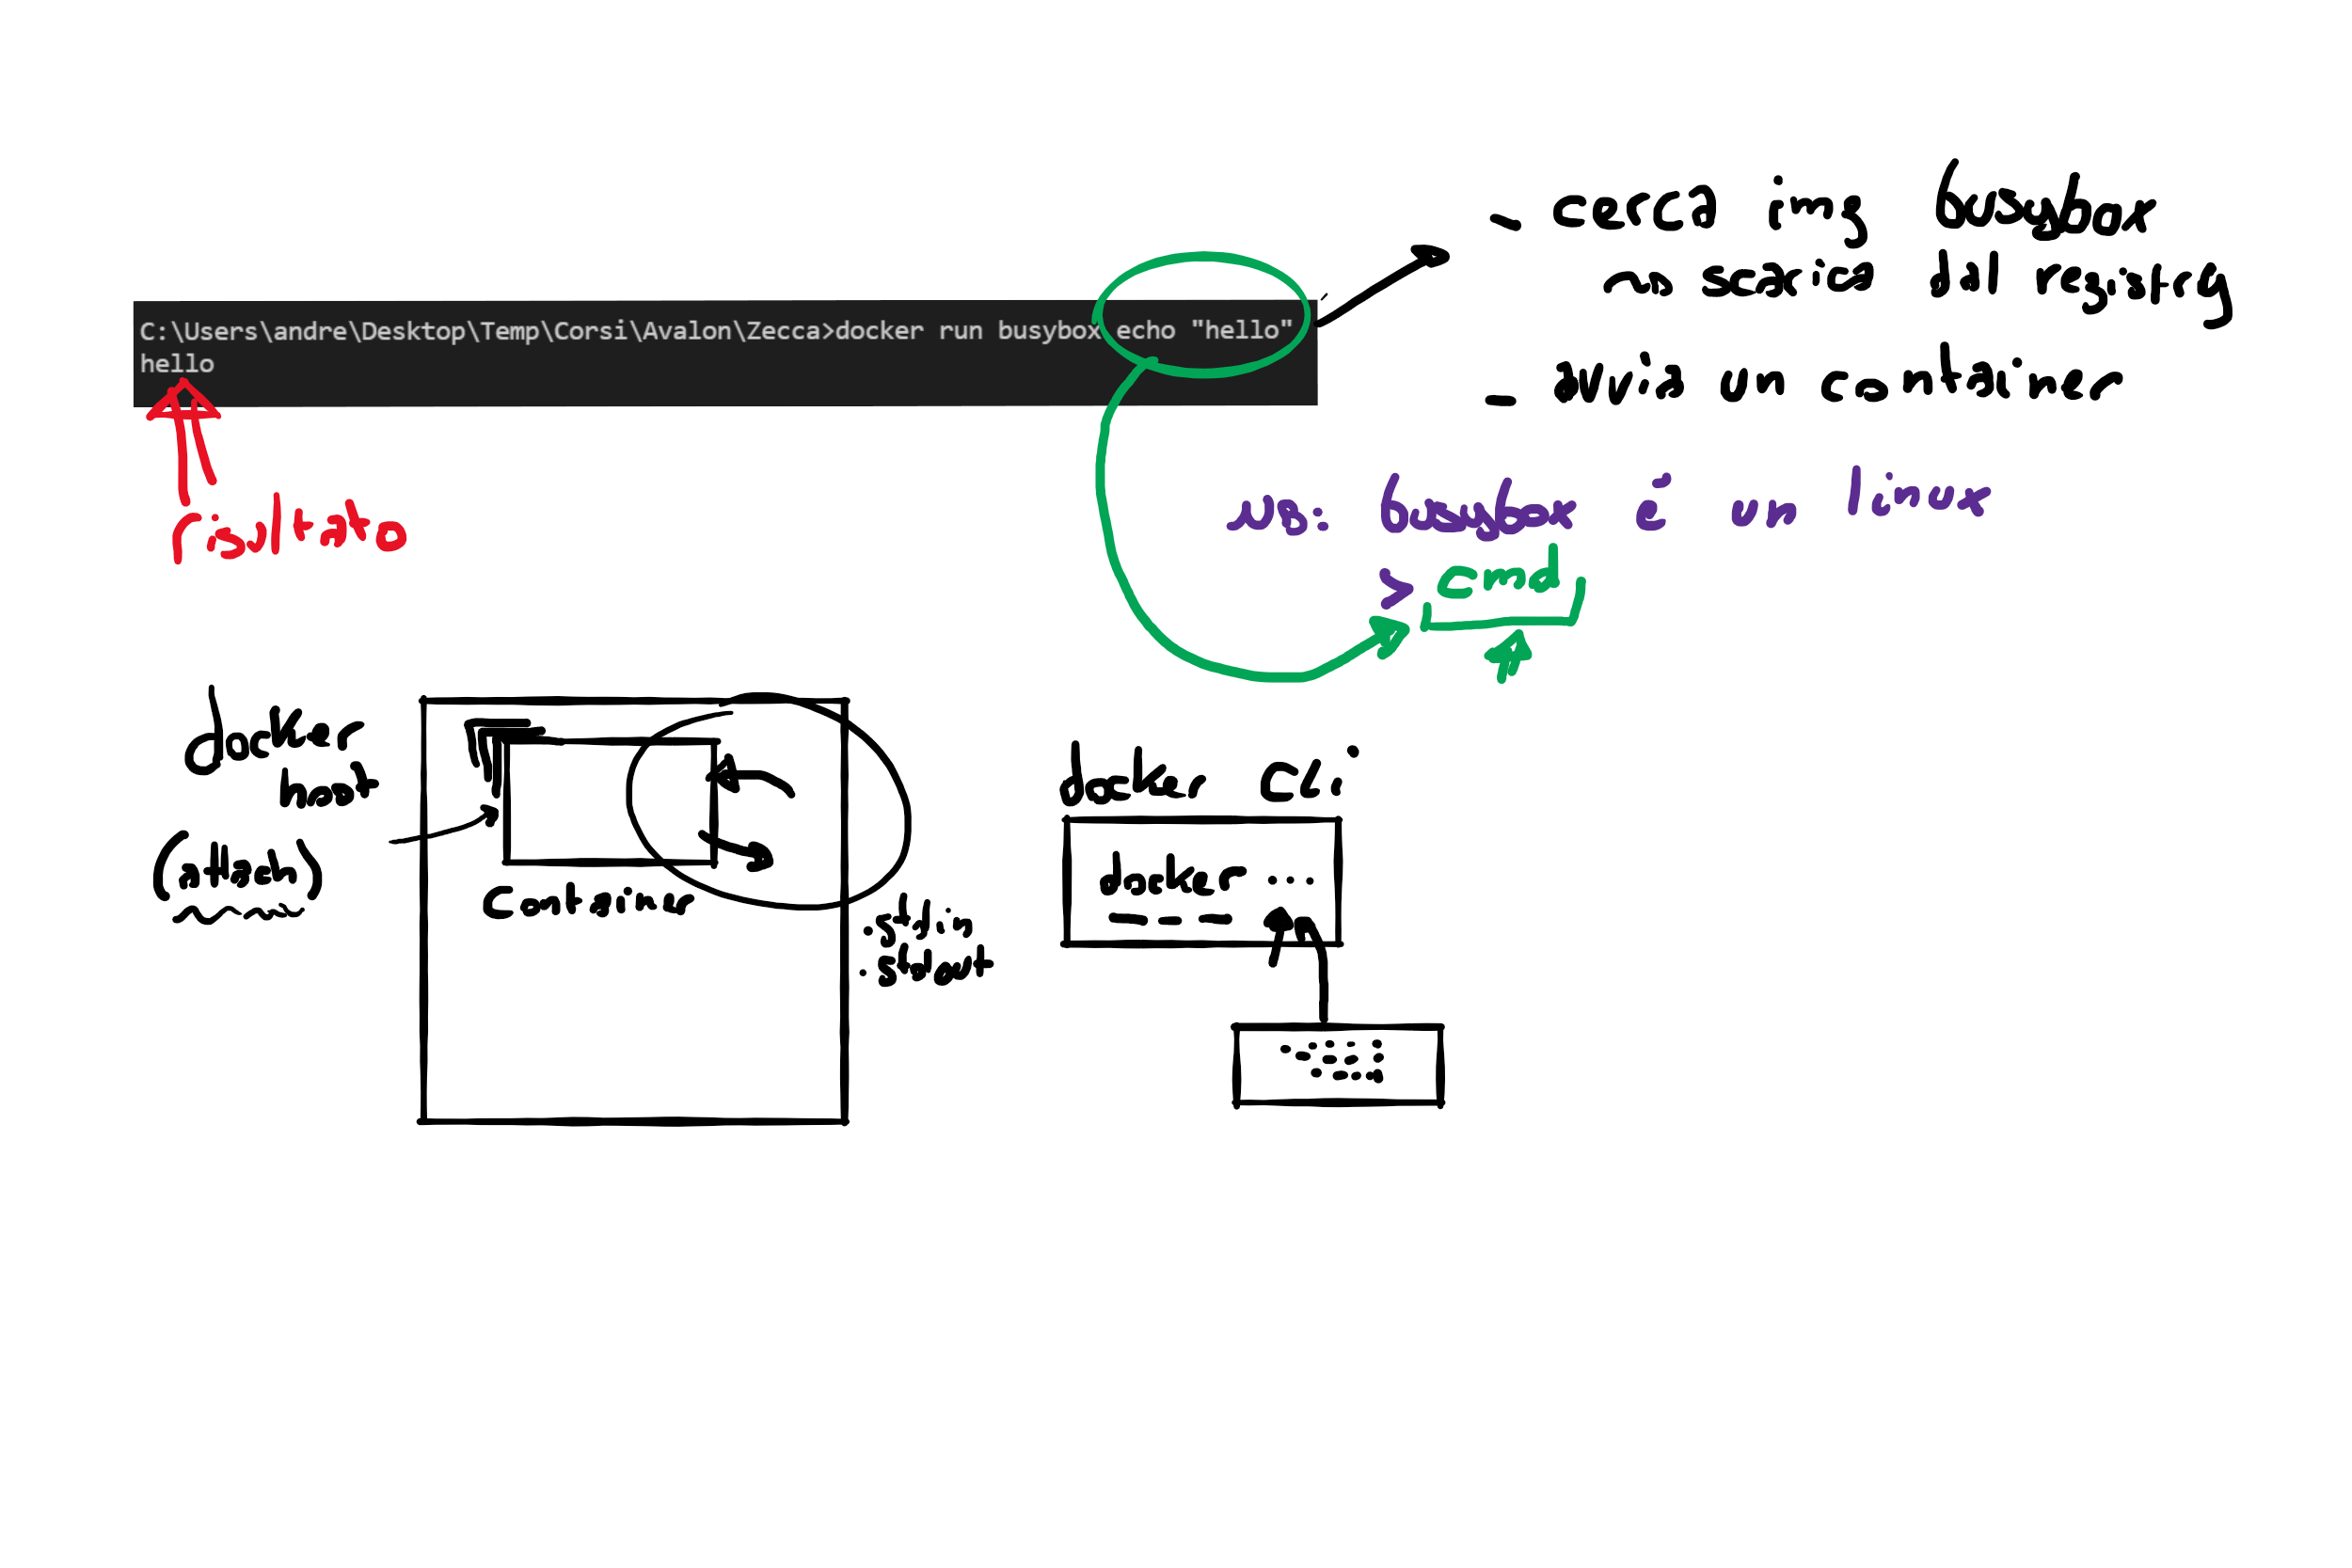 C:\Users\andre\Desktop\Temp\Corsi\Avalon\Zecca>docker run busybox echo "hello"
hello
risultato
- cerca img busybox
~> scarica dal registry
- avvia un container
NB: busybox é un linux
> cmd
docker
host
(attach)
container
. stdin
. stdout
docker CLi
docker ...